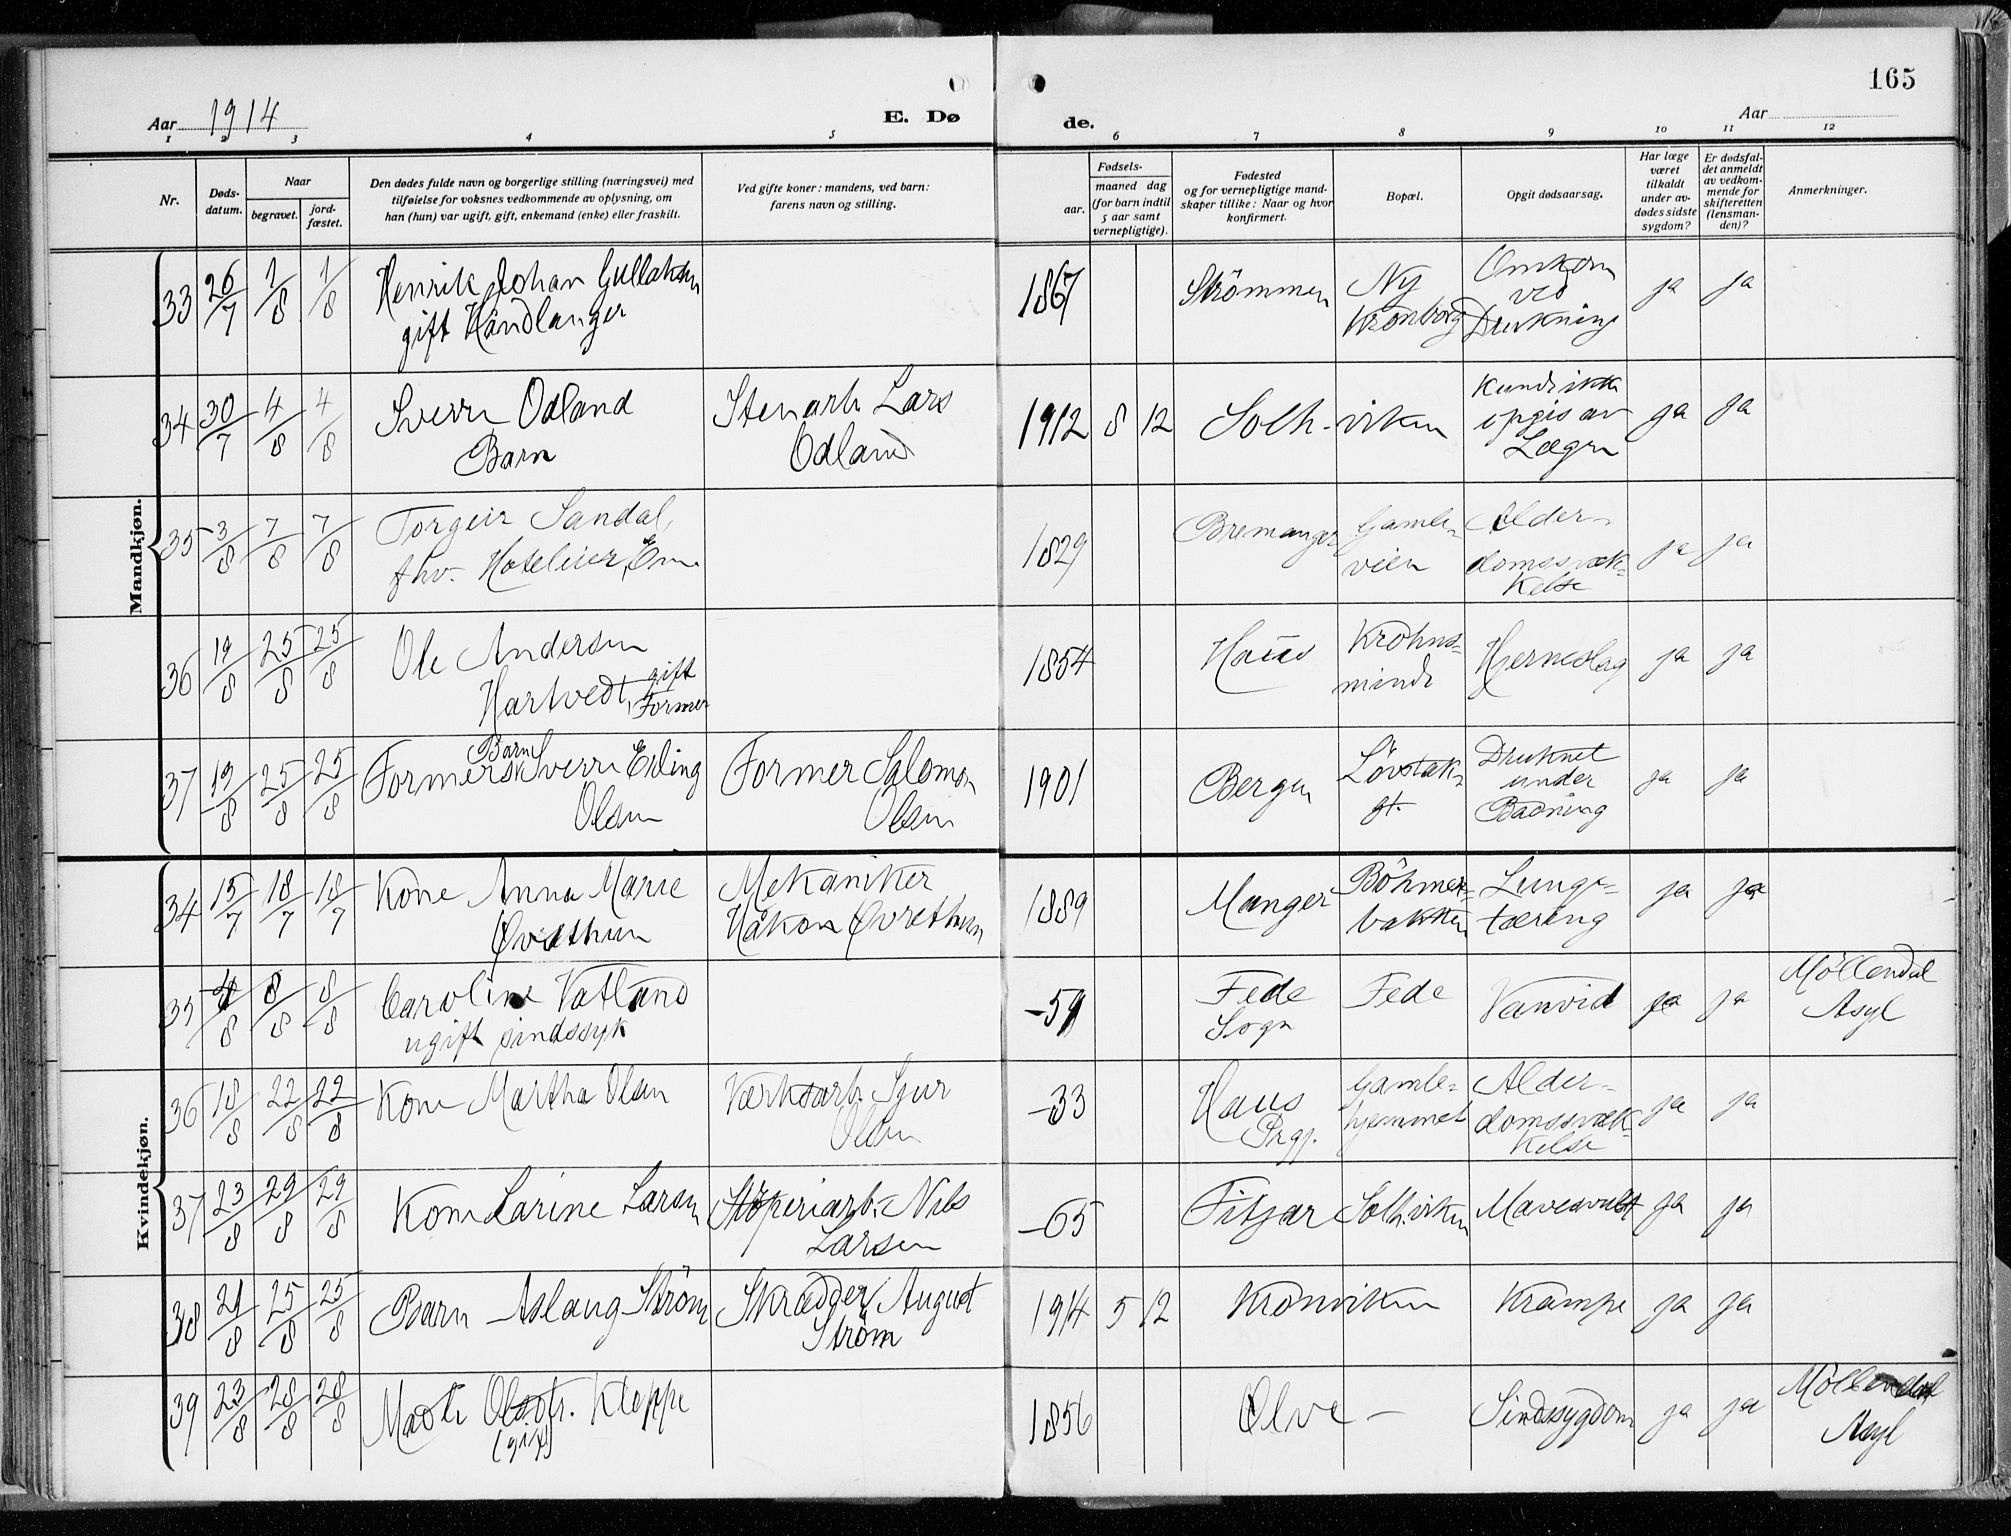 165
Aar 1914
E. Dø
de.
Aar
1 2 3 4 5 6 7 8 9 10 11 12
Nr.
Døds-
datum.
Naar
begravet.
jord-
fæstet.
Den dødes fulde navn og borgerlige stilling (næringsvei) med
tilføielse for voksnes vedkommende av oplysning, om
han (hun) var ugift, gift, enkemand (enke) eller fraskilt.
Ved gifte koner: mandens, ved barn:
farens navn og stilling.
aar.
Fødsels-
maaned dag
(for barn indtil
5 aar samt
vernepligtige).
Fødested
og for vernepligtige mand-
skaper tillike: Naar og hvor
konfirmert.
Bopæl.
Opgit dødsaarsag.
Har læge
været
tilkaldt
under av-
dødes sidste
sygdom?
Er dødsfal-
det anmeldt
av vedkom-
mende for
skifteretten
(lensman-
den)?
Anmerkninger.
Mandkjøn.
33 26/7 1/8 1/8 Henrik Johan Gullaksen
gift Håndlanger
1867 Strömmen Ny
Kronborg
Omkom
ved
Drukning
ja ja
34 30/7 4/8 4/8 Sverre Odland
Barn
Stenarb. Lars
Odland
1912 8 12 Solh-viken
Kunde ikke
opgis av
Lægen
ja ja
35 3/8 7/8 7/8 Torgeir Sandal,
fhv. Hotelier, Enm.
1829 Bremanger Gamle-
veien
Alder-
domssvæk-
kelse
ja ja
36 19/8 25/8 25/8 Ole Andersen
Hartvedt, gift
Former
1854 Haus Krohns-
minde
Hjerneslag ja ja
37 19/8 25/8 25/8 Barn
Formers Sverre Erling
Olsen
Former Salomon
Olsen
1901 Bergen Lövstak-
gt.
Druknet
under
Badning
ja ja
Kvindekjøn.
34 15/7 18/7 18/7 Kone Anna Marie
Øvrethun
Mekaniker
Håkon Øvrethun
1889 Manger Böhmer-
bakken
Lunge-
tæring
ja ja
35 4/8 8/8 8/8 Caroline Vatland
ugift sindssyk
-59 Fede
Sogn
Fede Vanvid ja ja Møllendal
Asyl
36 18/8 22/8 22/8 Kone Martha Olsen
Værksarb. Sjur
Olsen
-33 Haus
Prgj.
Gamle-
hjemmet
Alder-
domssvæk-
kelse
ja ja
37 23/8 29/8 29/8 Kone Larine Larsen
Støperiarb. Nils
Larsen
-65 Fitjar Solh.viken Mavesvulst ja ja
38 21/8 25/8 25/8 Barn Aslaug Ström
Skrædder August
Ström
1914 5 12 Kronviken Krampe ja ja
39 23/8 28/8 28/8 Marte Olsdtr. Kleppe
(gift)
1856 Ølve - Sindssygdom ja ja Møllendal
Asyl